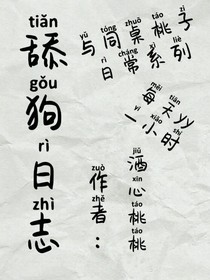 tiǎn
舔
gǒu
狗
rì
日
zhì
志
yǔ tóng zhuō táo zi
与同桌桃子
rì cháng xì liè
日常系列
měi tiān
每天yy
yì xiǎo shí
一小时
zuò
作
zhě
者
：
jiǔ
酒
xīn
心
táo
桃
táo
桃